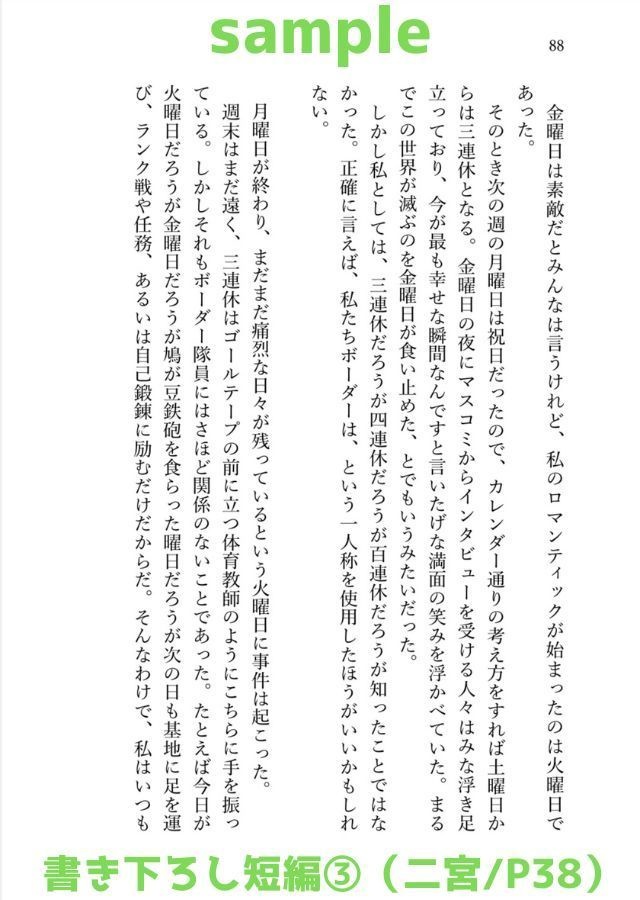 sample
88
金曜日は素敵だとみんなは言うけれど、私のロマンティックが始まったのは火曜日で
あった。
そのとき次の週の月曜日は祝日だったので、カレンダー通りの考え方をすれば土曜日か
らは三連休となる。金曜日の夜にマスコミからインタビューを受ける人々はみな浮き足
立っており、今が最も幸せな瞬間なんですと言いたげな満面の笑みを浮かべていた。まる
でこの世界が滅ぶのを金曜日が食い止めた、とでもいうみたいだった。
しかし私としては、三連休だろうが四連休だろうが百連休だろうが知ったことではな
かった。正確に言えば、私たちボーダーは、という一人称を使用したほうがいいかもしれ
ない。
月曜日が終わり、まだまだ痛烈な日々が残っているという火曜日に事件は起こった。
週末はまだ遠く、三連休はゴールテープの前に立つ体育教師のようにこちらに手を振っ
ている。しかしそれもボーダー隊員にはさほど関係のないことであった。たとえば今日が
火曜日だろうが金曜日だろうが鳩が豆鉄砲を食らった曜日だろうが次の日も基地に足を運
び、ランク戦や任務、あるいは自己鍛錬に励むだけだからだ。そんなわけで、私はいつも
書き下ろし短編③（二宮/P38）